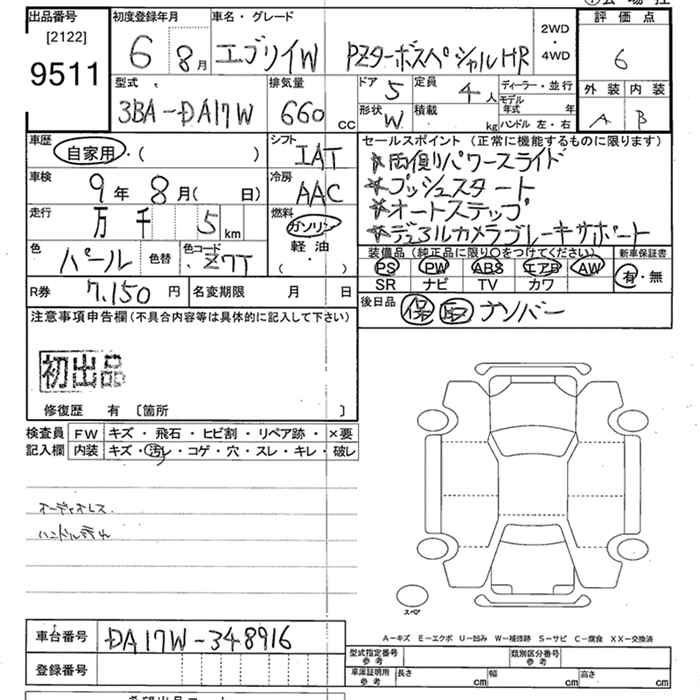 出品番号 初度登録年月 車名・グレード 2WD・4WD 評価点
[2122]
9511
6 8月 エブリイW PZターボスペシャルHR 6
型式 排気量 ドア 5 定員 4人 ディーラー・並行 外装 内装
3BA-DA17W 660cc 形状 W 積載 kg モデル年式 年 A B
ハンドル 左・右
車歴 自家用・( ) シフト IAT セールスポイント(正常に機能するものに限ります)
*両側パワースライド
車検 9年 8月( 日) 冷房 AAC *プッシュスタート
走行 万 千 5km 燃料 ガソリン *オートステップ
軽油 *デュアルカメラブレーキサポート
( ・ )
色 パール 色替 色コード Z7T 装備品(純正品に限り○をつけてください) 新車保証書
PS PW ABS エアB AW 有・無
SR ナビ TV カワ
R券 7,150円 名変期限 月 日 後日品 保 取 ナンバー
注意事項申告欄(不具合内容等は具体的に記入して下さい)
初出品
修復歴 有 〔箇所 〕
検査員記入欄 FW キズ・飛石・ヒビ割・リペア跡・×要
内装 キズ・汚れ・コゲ・穴・スレ・キレ・破レ
オーディオレス
スペア
A-キズ E-エクボ U-凹み W-補修跡 S-サビ C-腐食 XX-交換済
車台番号 DA17W-348916 型式指定番号 参考 類別区分番号 参考
登録番号 車庫証明用 参考 長さ cm 幅 cm 高さ cm